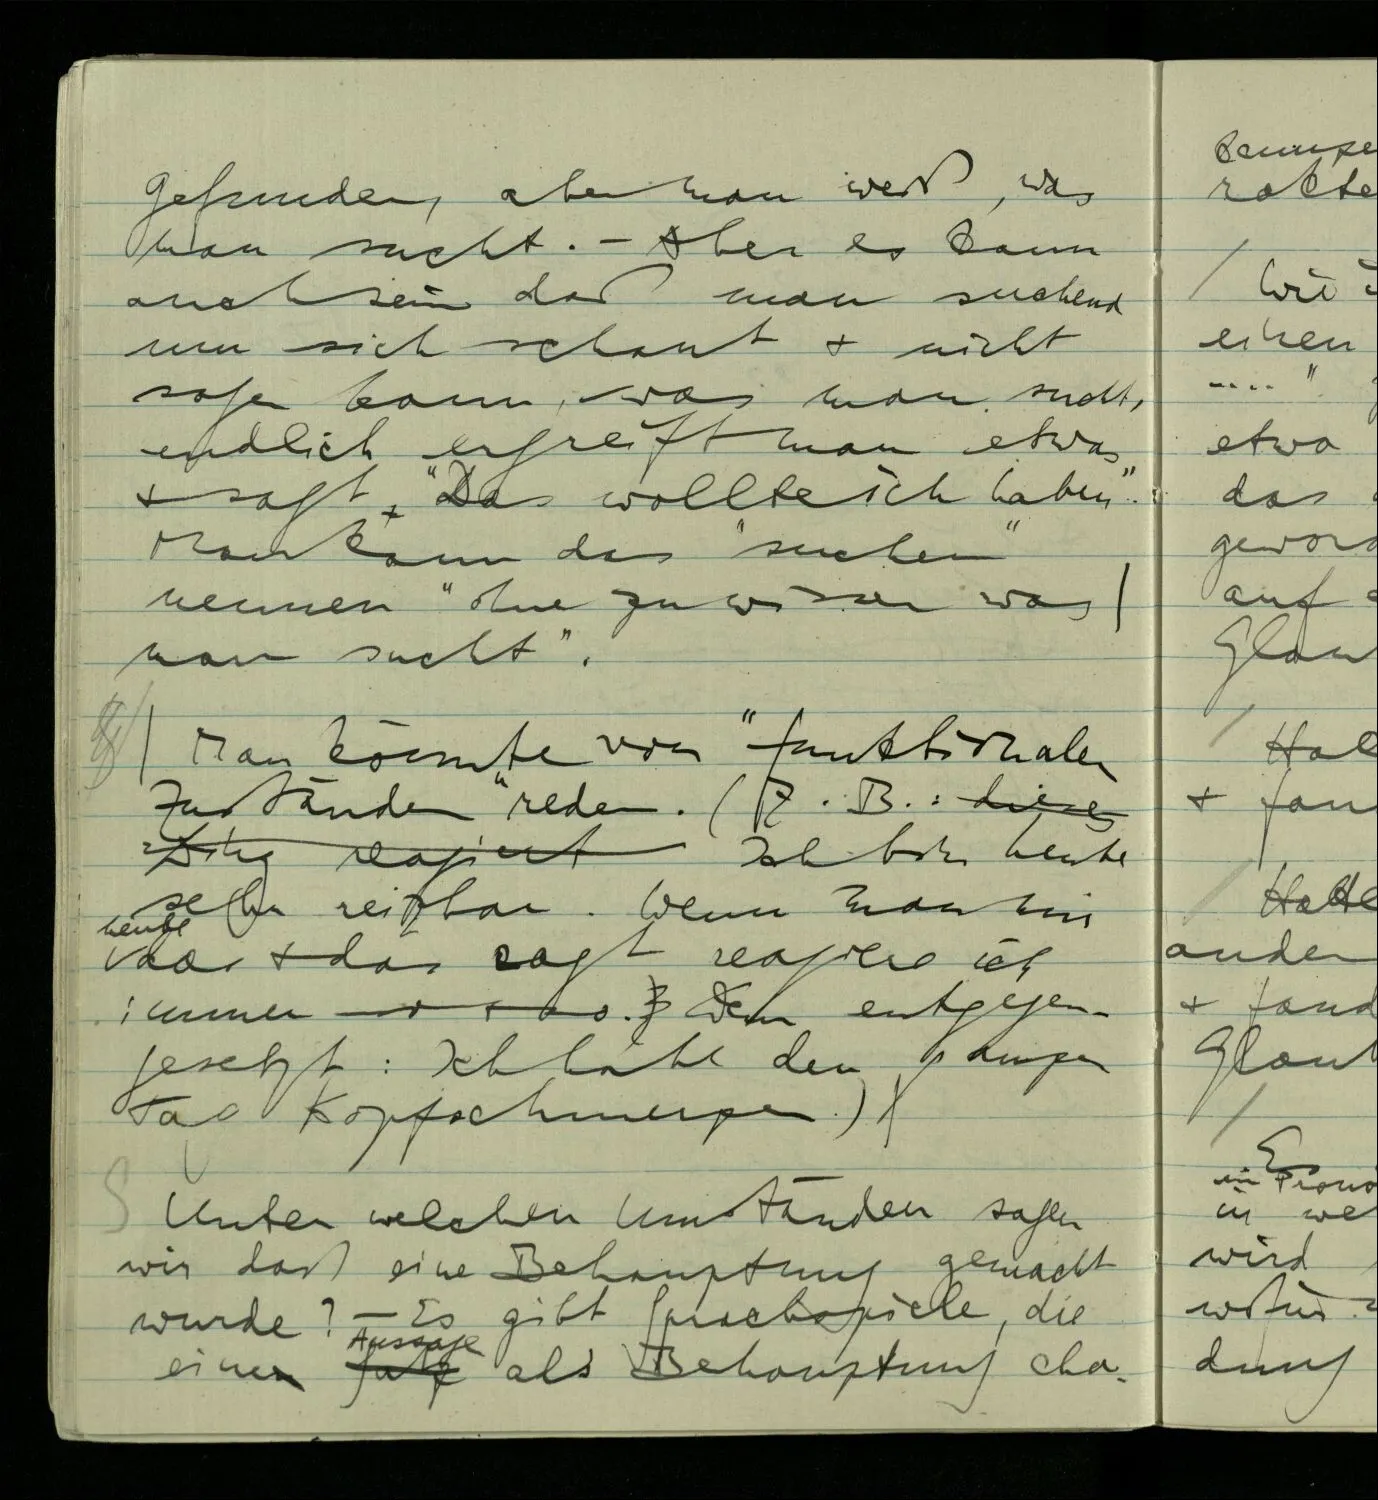 gefunden, aber man weiß, was
man sucht. – Aber es kann
auch sein daß man suchend
um sich schaut & nicht
sagen kann, was man sucht;
endlich ergreift man etwas
& sagt, "Das wollte ich haben".
Man kann das "suchen"
nennen "ohne zu wissen was
man sucht".
Man könnte von "funktionalen
Zuständen" reden. (Z.B.: dieses
Ding reagiert Ich bin heute
sehr reizbar. Wenn man mir
heute
das & das sagt reagiere ich
immer so & so. Dem entgegen-
gesetzt: Ich habe den ganzen
Tag Kopfschmerzen.)
§ Unter welchen Umständen sagen
wir daß eine Behauptung gemacht
wurde? – Es gibt Sprachspiele, die
Aussage
einen Satz als Behauptung cha-
rakte
/ Wie
einen
...."
etwa
das
geword
auf
Glau
/ Hal
& fan
/ Hätte
ander
& fand
Glaub
/ Es
in
in we
wird
wofür
dung